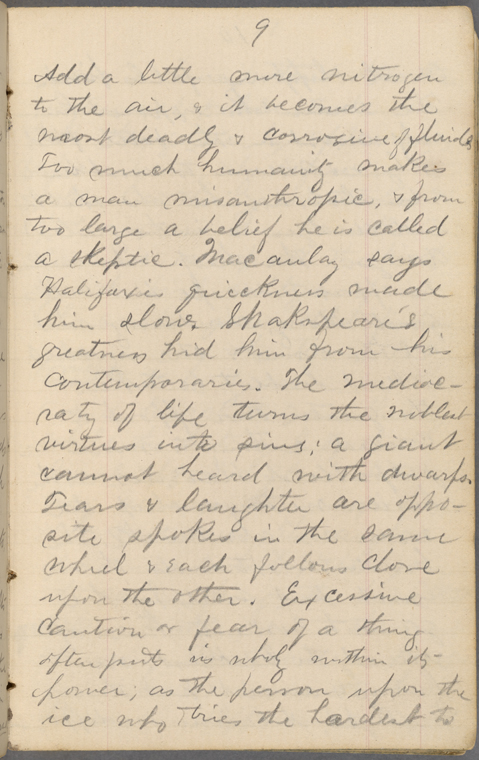 9
Add a little more nitrogen
to the air, & it becomes the
most deadly & corrosive of fluids
Too much humanity makes
a man misanthropic, & from
too large a belief he is called
a skeptic. Macaulay says
Halifax's quickness made
him slow. Shakspeare's
greatness hid him from his
contemporaries. The medioc-
raty of life turns the noblest
virtues into sins; a giant
cannot heard with dwarfs.
Tears & laughter are oppo-
site spokes in the same
wheel & each follows close
upon the other. Excessive
caution or fear of a thing
often puts is wholy within its
power; as the person upon the
ice who tries the hardest to